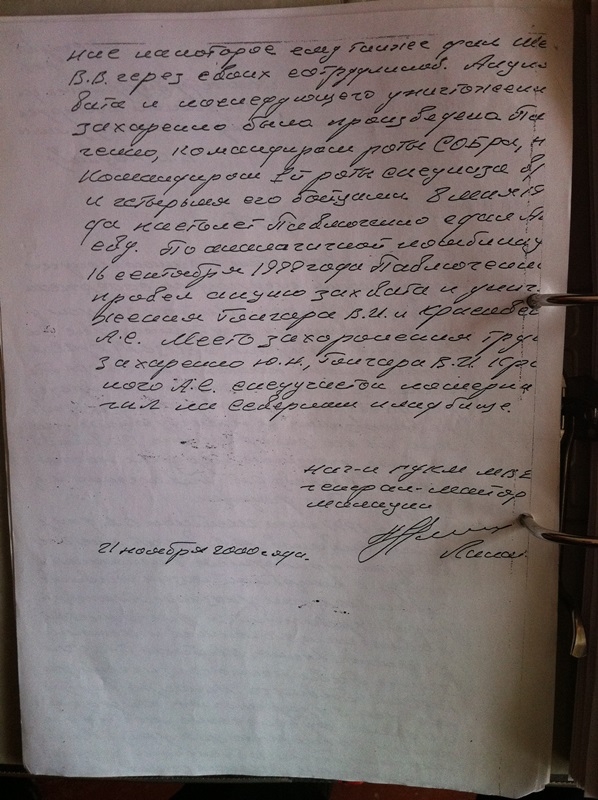 ние на которое ему также дал Ше
В.В. через своих сотрудников. Акцию
вата и последующего уничтожени
Захаренко была произведена Па
ченко, командиром роты СОБРа,
Командиром 1й роты спецназа
и четырьмя его бойцами 8 мая 19
да пистолет Павлюченко сдал А
еву. По аналогичной
16 сентября 1999 года Павлюченк
провел акцию захвата и унич
жения Гончара В.И. и Красовс
А.С. Место захоронения тру
Захаренко Ю.Н., Гончара В.И. Кра
ного А.С. спецучасток
гил на Северном кладбище.
Нач-к ГУКМ МВД
генерал-майор
милиции
21 ноября 2000 года.